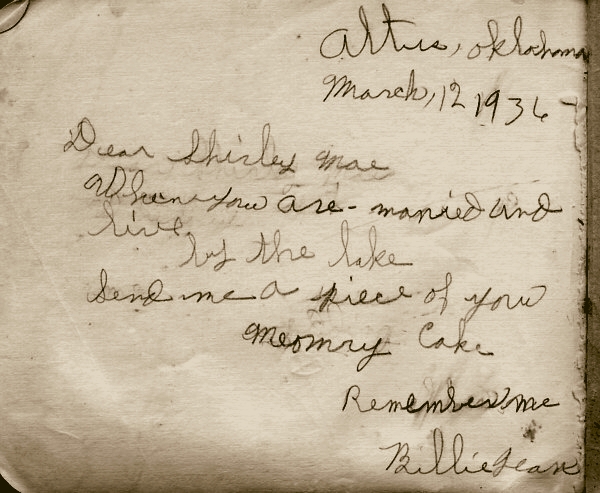 Altus, Oklahoma
March, 12 1936
Dear Shirley Mae
When you are - married and
live
by the lake
Send me a piece of you
Meomry Cake
Remember me
Billie Jean